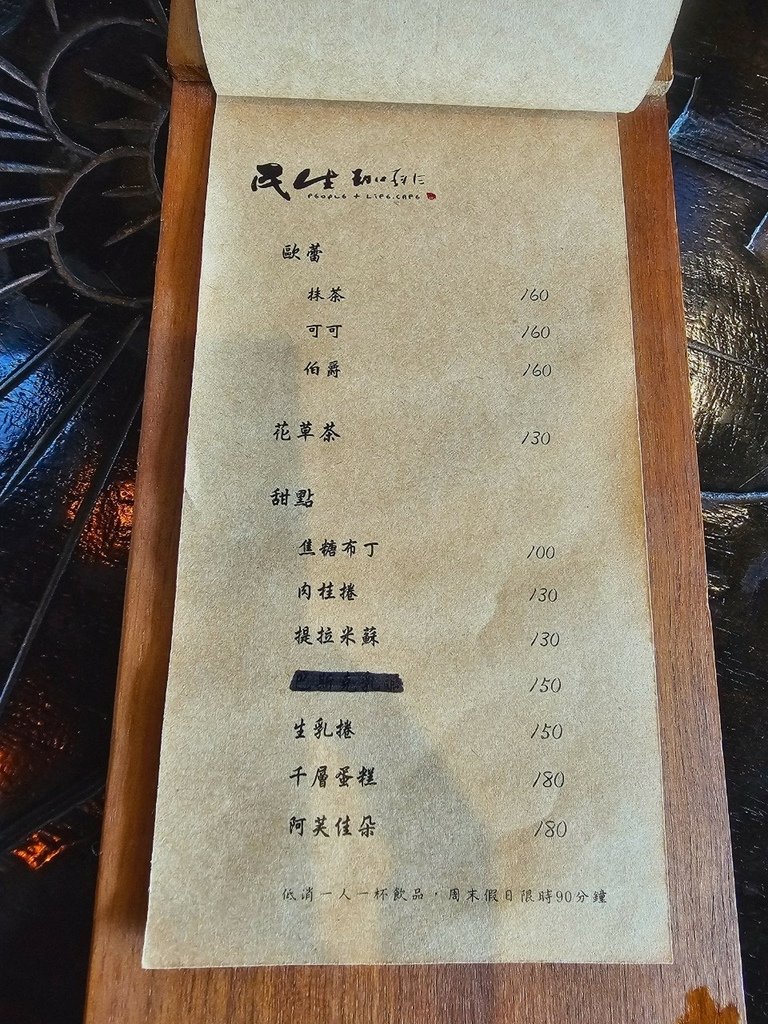 民生咖啡
PEOPLE + LIFE.CAFE
歐蕾
抹茶 160
可可 160
伯爵 160
花草茶 130
甜點
焦糖布丁 100
肉桂捲 130
提拉米蘇 130
巴斯克乳酪 150
生乳捲 150
千層蛋糕 180
阿芙佳朵 180
低消一人一杯飲品，周末假日限時90分鐘